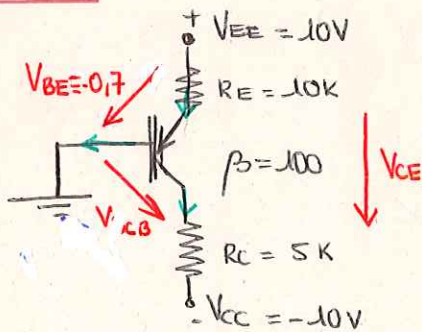 + VEE = 10V
VBE=-0,7
RE = 10K
β = 100
VCE
VCB
RC = 5K
- VCC = -10V